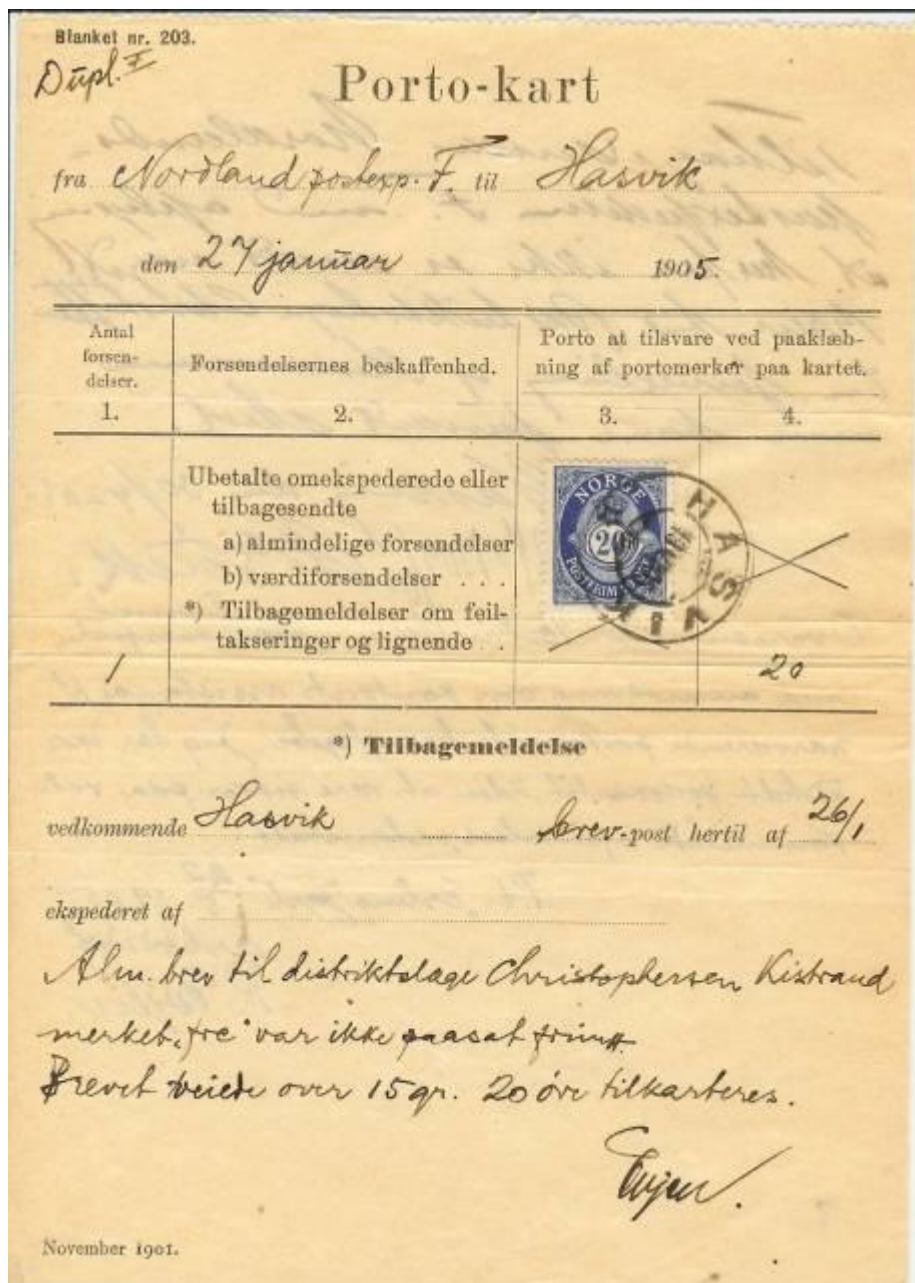 Blanket nr. 203.
Dupl. F
Porto-kart
fra Nordland postexp. F. til Hasvik
den 27 januar 1905.
Antal forsen-delser.
Forsendelsernes beskaffenhed.
Porto at tilsvare ved paaklæb-
ning af portomerker paa kartet.
1. 2. 3. 4.
Ubetalte omekspederede eller
tilbagesendte
a) almindelige forsendelser
b) værdiforsendelser . . .
*) Tilbagemeldelser om feil-
takseringer og lignende . .
NORGE
20
POSTFRIM
HASVIK
1 20
*) Tilbagemeldelse
vedkommende Hasvik brev-post hertil af 26/1
ekspederet af
Alm. brev til distriktslage Christophersen Kistrand
merket „fre“ var ikke paasat frim.
Brevet veiede over 15 gr. 20 öre tilkarteres.
November 1901.